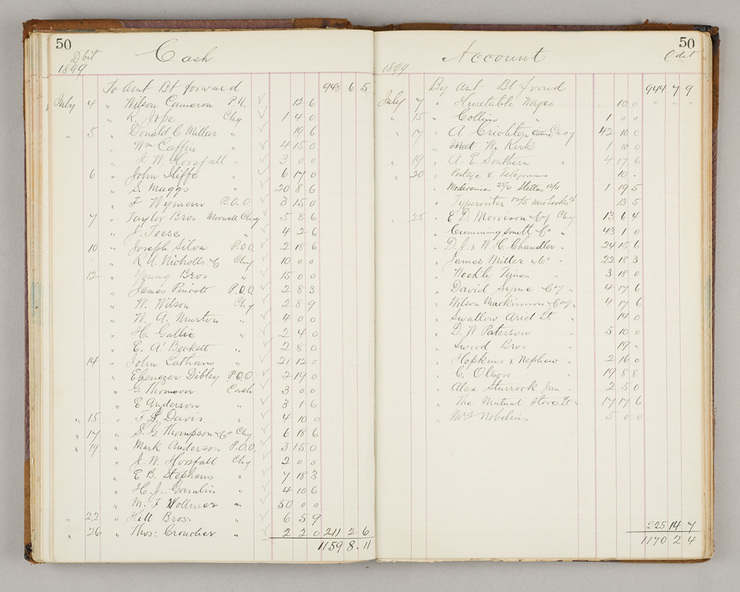 50
Debit Cash
1899
To Amt Bt forward 948 6 5
July 4 " Wilson Cameron P.N. 12 6
" R Jobe Chq 1 4 0
" 5 " Donald C Miller " 19 6
" Wm Caffin " 4 15 0
" J. W. Horsfall " 3 0 0
6 " John Iliffe " 6 17 0
" S. Maggs " 20 8 6
" F Wyman P.O.O 3 15 0
7 " Taylor Bros Chq 5 8 6
" Teese " 4 2 6
10 " Joseph P.O.O 2 18 6
" R U Nicholls & C Chq 10 0 0
12 " Young Bros " 15 0 0
" James P.O.O 2 8 3
" W. Wilson Chq 2 8 9
" W. A. " 4 0 0
" H. Gallie " 2 4 0
" E. A' Beckett " 2 8 0
14 " John " 21 12 0
" Ebenezer Sibley P.O.O 2 19 0
" G Thomson Cash 3 0 0
" E Anderson " 3 1 6
" 15 " Davis " 4 10 0
" 17 " S. G Thompson & Co Chq 6 18 6
" 19 " Mark Anderson P.O.O. 3 15 0
" J. W. Horsfall Chq 2 0 0
" E B. Stephens " 7 18 3
" H. J. " 4 10 6
" M. F " 50 0 0
" 22 " Hill Bros. " 6 5 9
" 26 " Thos: Croucher " 2 2 0 211 2 6
1159 8 11
50
Account Credit
1899
By Amt Bt forwd 944 7 9
July 7 " Huntable Wages 10 0
" 15 " Collins " 1 0 0
" 17 " A Crichton 42 10 0
" W. Kirk 1 10 0
" 19 " A E Southern " 4 17 6
" 20 " Postage & Telegrams 10
1 19 5
" Typewriter 13 5
" 25 " E. D. Morrison & Co Chq 13 6 4
" Cumming Smith & Co " 43 1 0
" D. J. & W. H. Chandler " 24 15 6
" James Miller & Co " 22 18 3
" Weekly Times " 3 18 0
" David Syme & Co " 4 17 6
" Wilson Mackinnon & Co " 4 17 6
" Swallow Ariell Lt " 14 0
" D. W Paterson " 5 10 0
" Sword Bros " 19
" Hopkins & Nephew " 2 16 0
" C. Olsen " 19 8 8
" Alex Sturrock Jun " 2 5 0
" The Mutual Store Lt " 17 17 6
" 5 0 0
225 14 7
1170 2 4